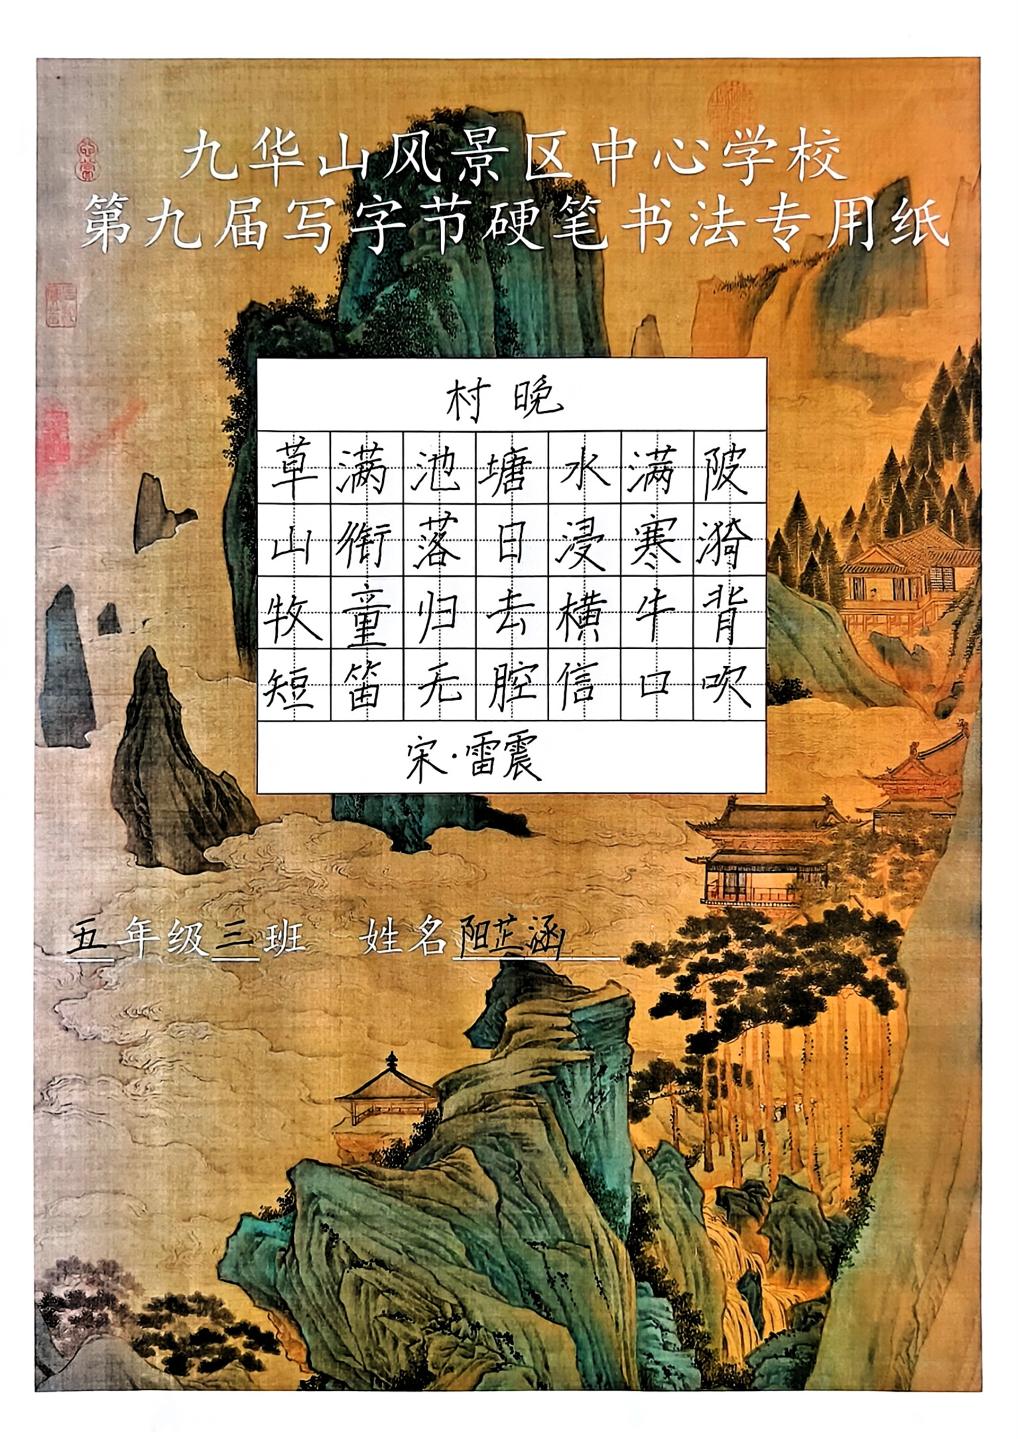 九华山风景区中心学校
第九届写字节硬笔书法专用纸
村晚
草满池塘水满陂
山衔落日浸寒漪
牧童归去横牛背
短笛无腔信口吹
宋·雷震
五年级三班 姓名阳芷涵